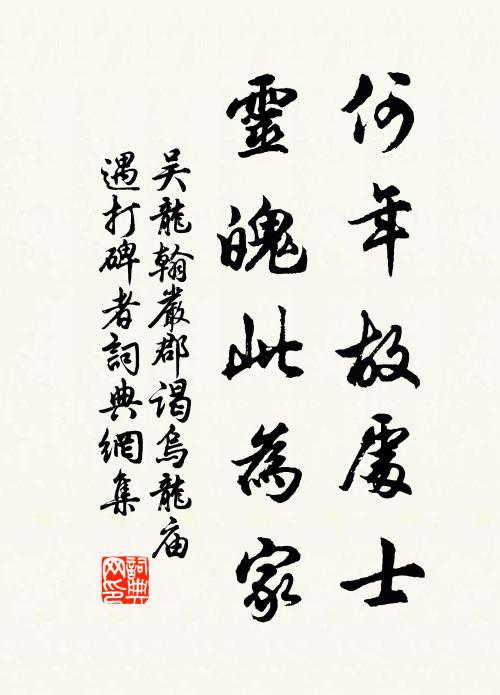 何年故處士
靈魄此為家
吴龍翰嚴郡谒烏龍庙
遇打碑者詞典網集
詞典
网印